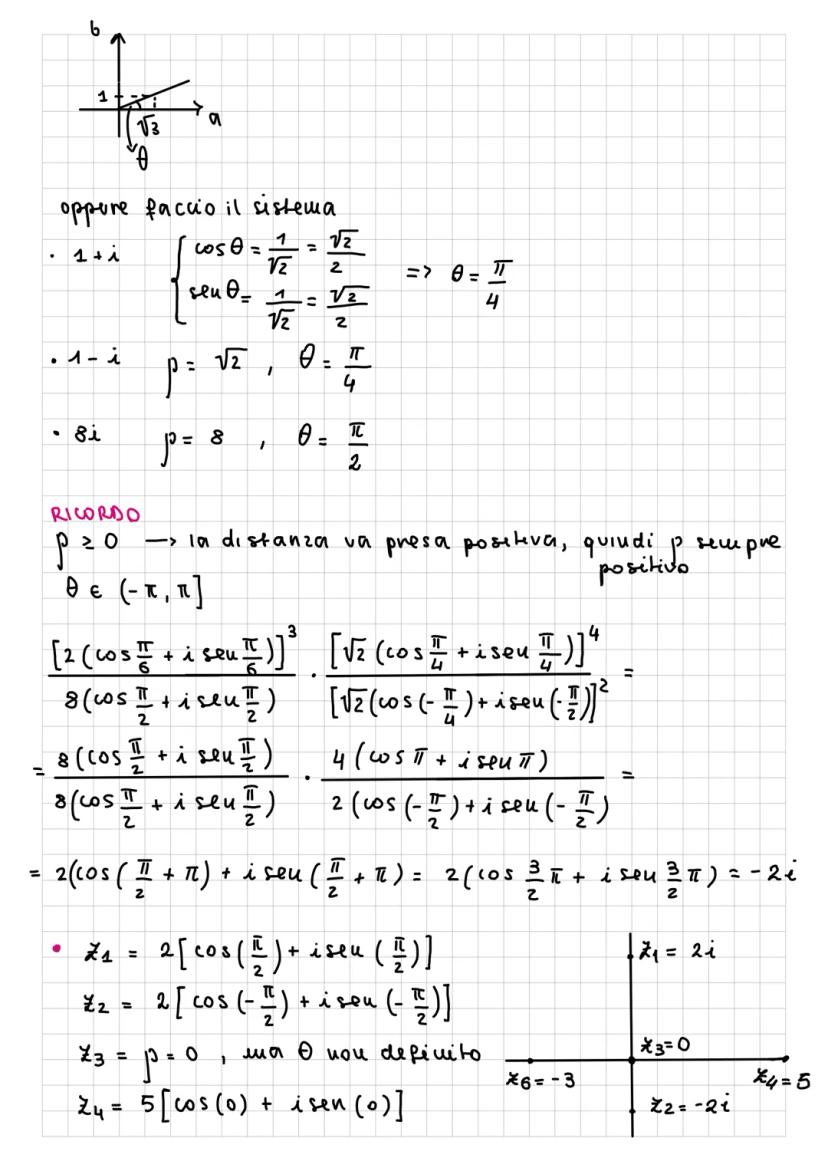 b
1
√3
a
θ
oppure faccio il sistema
· 1+i { cosθ = 1/√2 = √2/2
senθ = 1/√2 = √2/2 => θ = π/4
· 1-i ρ = √2 , θ = π/4
· 8i ρ = 8 , θ = π/2
RICORDO
ρ ≥ 0 —> la distanza va presa positiva, quindi ρ sempre
positivo
θ ∈ (-π, π]
[2(cos π/6 + i sen π/6)]³ / 8(cos π/2 + i sen π/2) · [√2(cos π/4 + i sen π/4)]⁴ / [√2(cos(-π/4) + i sen(-π/2)]² =
= 8(cos π/2 + i sen π/2) / 8(cos π/2 + i sen π/2) · 4(cos π + i sen π) / 2(cos(-π/2) + i sen(-π/2) =
= 2(cos(π/2 + π) + i sen(π/2 + π) = 2(cos 3/2 π + i sen 3/2 π) = -2i
• z1 = 2[cos(π/2) + i sen(π/2)]
z2 = 2[cos(-π/2) + i sen(-π/2)]
z3 = ρ = 0 , ma θ non definito
z4 = 5[cos(0) + i sen(0)]
z1 = 2i
z3=0
z6 = -3
z4=5
z2 = -2i